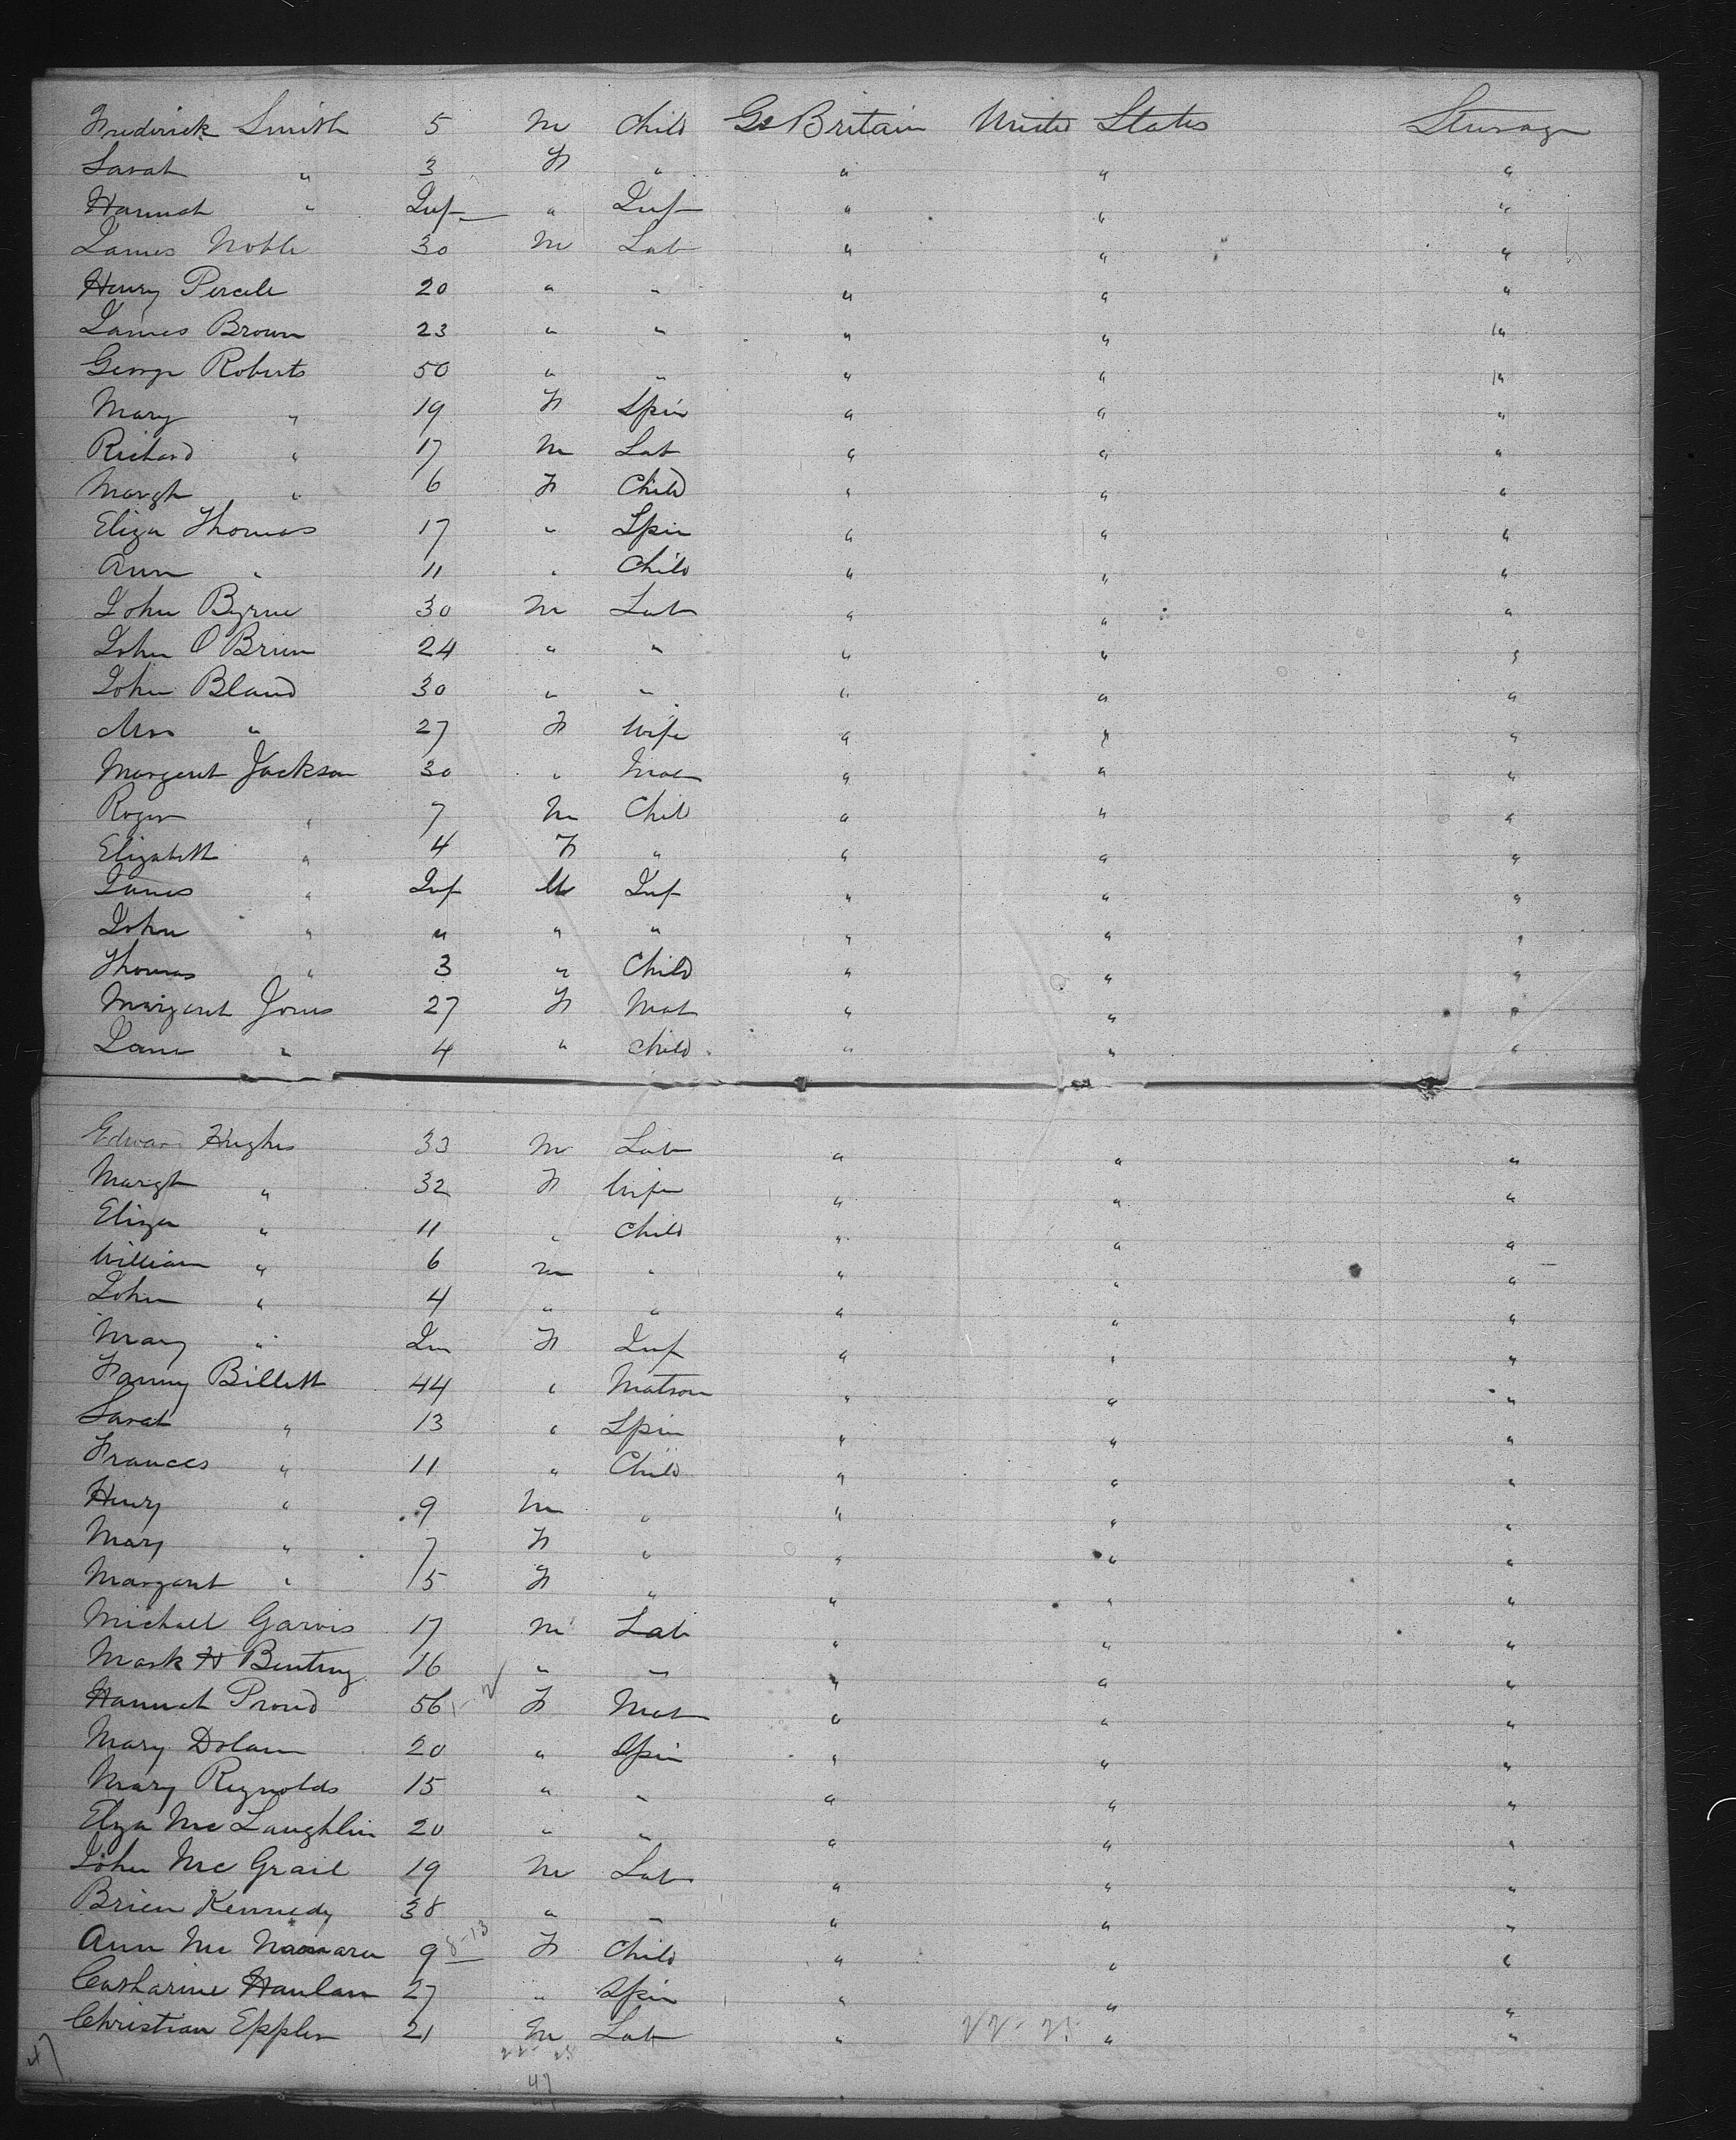 Frederick Smith 5 M Child Gt Britain United States Steerage
Sarah " 3 F " " " "
Hannah " Inf " Inf " " "
James Noble 30 M Lab " " "
Henry 20 " " " " "
James Brown 23 " " " " "
George Roberts 50 " " " " "
Mary " 19 F Spin " " "
Richard " 17 M Lab " " "
Margt " 6 F Child " " "
Eliza Thomas 17 " Spin " " "
Ann " 11 " Child " " "
John Byrne 30 M Lab " " "
John O'Brien 24 " " " " "
John Bland 30 " " " " "
Mrs " 27 F Wife " " "
Margaret Jackson 30 " Mat " " "
Roger " 7 M Child " " "
Elizabeth " 4 F " " " "
James " Inf M Inf " " "
John " " " " " " "
Thomas " 3 " Child " " "
Margaret Jones 27 F Mat " " "
Jane " 4 " Child " " "
Edward Hughes 33 M Lab " " "
Margt " 32 F Wife " " "
Eliza " 11 " Child " " "
William " 6 M " " " "
John " 4 " " " " "
Mary " In F Inf " " "
Fanny Billett 44 " Matron " " "
Sarah " 13 " Spin " " "
Frances " 11 " Child " " "
Henry " 9 M " " " "
Mary " 7 F " " " "
Margaret " 5 F " " " "
Michael Garvis 17 M Lab " " "
Mark H 16 " " " " "
Hannah Proud 56 F Mat " " "
Mary Dolan 20 " Spin " " "
Mary Reynolds 15 " " " " "
Elza Mc Laughlin 20 " " " " "
John Mc Grail 19 M Lab " " "
Brien Kennedy 38 " " " " "
Ann Mc Namara 9 8-13 F Child " " "
Catharine Hanlan 27 " Spin " " "
Christian Eppler 21 M Lab " 22-25 " "
47 22 25
47